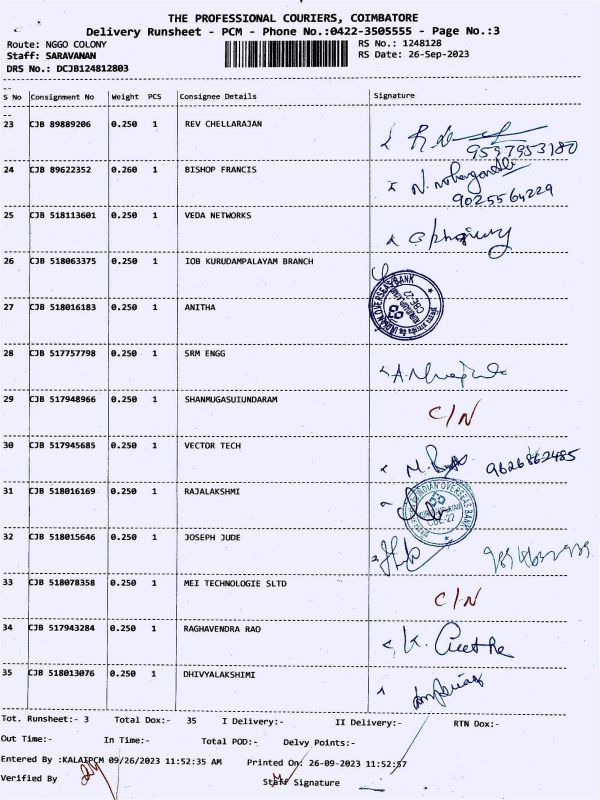 THE PROFESSIONAL COURIERS, COIMBATORE
Delivery Runsheet - PCM - Phone No.:0422-3505555 - Page No.:3
Route: NGGO COLONY RS No.: 1248128
Staff: SARAVANAN RS Date: 26-Sep-2023
DRS No.: DCJB124812803
S No Consignment No Weight PCS Consignee Details Signature
23 CJB 89889206 0.250 1 REV CHELLARAJAN
9597953180
24 CJB 89622352 0.260 1 BISHOP FRANCIS
9025564229
25 CJB 518113601 0.250 1 VEDA NETWORKS
26 CJB 518063375 0.250 1 IOB KURUDAMPALAYAM BRANCH
INDIAN OVERSEAS BANK
CBE-22
27 CJB 518016183 0.250 1 ANITHA
28 CJB 517757798 0.250 1 SRM ENGG
29 CJB 517948966 0.250 1 SHANMUGASUIUNDARAM C/N
30 CJB 517945685 0.250 1 VECTOR TECH 9626862485
31 CJB 518016169 0.250 1 RAJALAKSHMI
INDIAN OVERSEAS BANK
CBE-22
32 CJB 518015646 0.250 1 JOSEPH JUDE
33 CJB 518078358 0.250 1 MEI TECHNOLOGIE SLTD C/N
34 CJB 517943284 0.250 1 RAGHAVENDRA RAO K. Geetha
35 CJB 518013076 0.250 1 DHIVYALAKSHIMI
Tot. Runsheet:- 3 Total Dox:- 35 I Delivery:- II Delivery:- RTN Dox:-
Out Time:- In Time:- Total POD:- Delvy Points:-
Entered By :KALAIPCM 09/26/2023 11:52:35 AM Printed On: 26-09-2023 11:52:57
Verified By Staff Signature